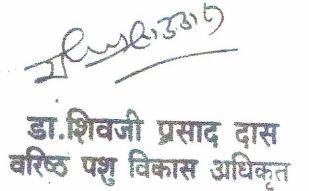 डा.शिवजी प्रसाद दास
वरिष्ठ पशु विकास अधिकृत